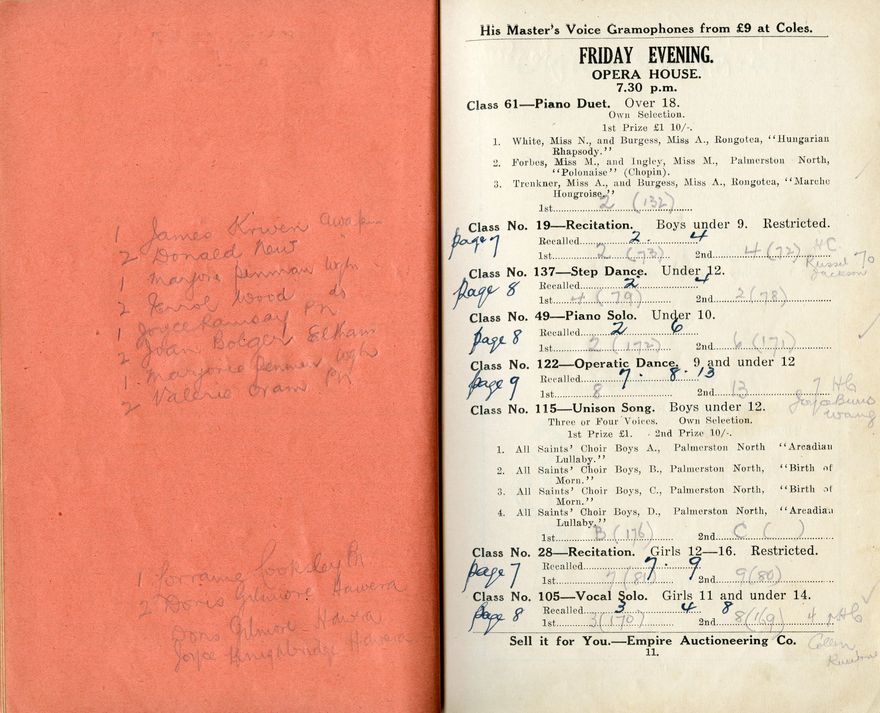 1 James Kriven
2 Donald New "
1 Marjorie Penman Wgh
2 Errol Wood do
1 Joyce Ramsay PN
2 Joan Bolger Eltham
1 Marjorie Penman Wgh
2 Valerie Oram PN
1 Lorraine Cooksley PN
2 Doris Gilmore Hawera
Doris Gilmore Hawera
Joyce Knighbridge Hawera
His Master's Voice Gramophones from £9 at Coles.
FRIDAY EVENING.
OPERA HOUSE.
7.30 p.m.
Class 61—Piano Duet. Over 18.
Own Selection.
1st Prize £1 10/-.
1. White, Miss N., and Burgess, Miss A., Rongotea, "Hungarian
Rhapsody."
2. Forbes, Miss M., and Ingley, Miss M., Palmerston North,
"Polonaise" (Chopin).
3. Trenkner, Miss A., and Burgess, Miss A., Rongotea, "Marche
Hongroise."
1st 2 (132)
Class No. 19—Recitation. Boys under 9. Restricted.
page 7 Recalled 2. 4
1st 2 (73) 2nd 4 (72) H.C. Russel 70
Jackson
Class No. 137—Step Dance. Under 12.
page 8 Recalled 2 4
1st 4 (79) 2nd 2 (78)
Class No. 49—Piano Solo. Under 10.
page 8 Recalled 2 6
1st 2 (172) 2nd 6 (171)
Class No. 122—Operatic Dance. 9 and under 12
page 9 Recalled 7. 8. 13
1st 8 2nd 13 7 HC
Joyce Burns
Wang
Class No. 115—Unison Song. Boys under 12.
Three or Four Voices. Own Selection.
1st Prize £1. 2nd Prize 10/-.
1. All Saints' Choir Boys A., Palmerston North "Arcadian
Lullaby."
2. All Saints' Choir Boys, B., Palmerston North, "Birth of
Morn."
3. All Saints' Choir Boys, C., Palmerston North, "Birth of
Morn."
4. All Saints' Choir Boys, D., Palmerston North, "Arcadian
Lullaby."
1st B (176) 2nd C ( )
Class No. 28—Recitation. Girls 12—16. Restricted.
page 7 Recalled 7. 9
1st 7 (81) 2nd 9 (80)
Class No. 105—Vocal Solo. Girls 11 and under 14.
page 8 Recalled 3 4 8
1st 3 (170) 2nd 8 (169) 4 HC
Colleen
Sell it for You.—Empire Auctioneering Co.
11.